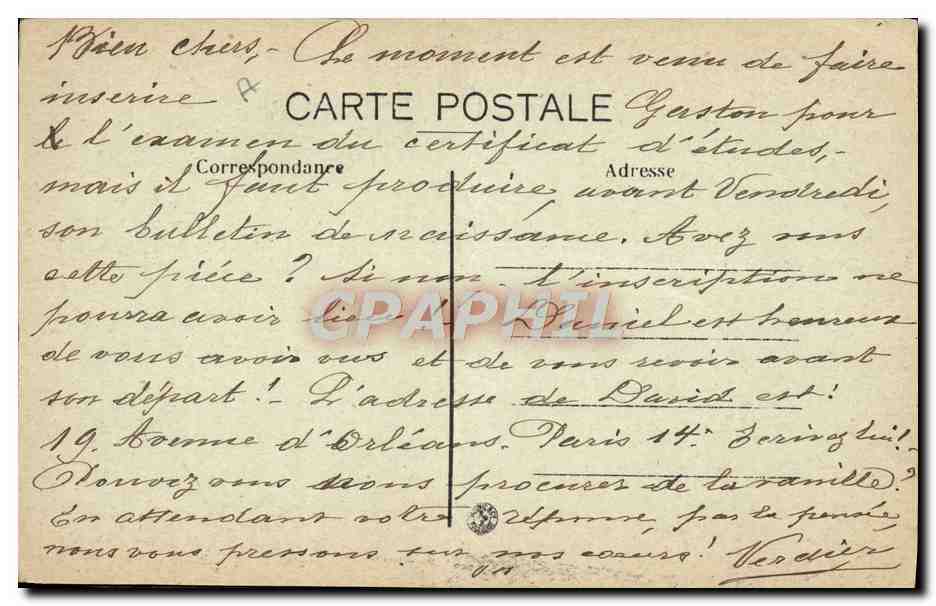 Bien chers,- Le moment est venu de faire
inscrire CARTE POSTALE Gerston pour
l'examen du certificat d'études,-
Correspondance Adresse
mais il faut produire, avant Vendredi,
son bulletin de naissance. Avez vous
cette pièce? Si non l'inscription ne
pourra avoir lieu! Daniel est heureux
CPAPHIL
de vous avoir vus et de vous revoir avant
son départ! - L'adresse de David est!
19. Avenue d'Orléans. Paris 14. Ecrivez lui! -
Pouvez vous nous procurer de la vanille?
En attendant votre réponse, par la pensée,
nous vous pressons sur nos cœurs! Verdier